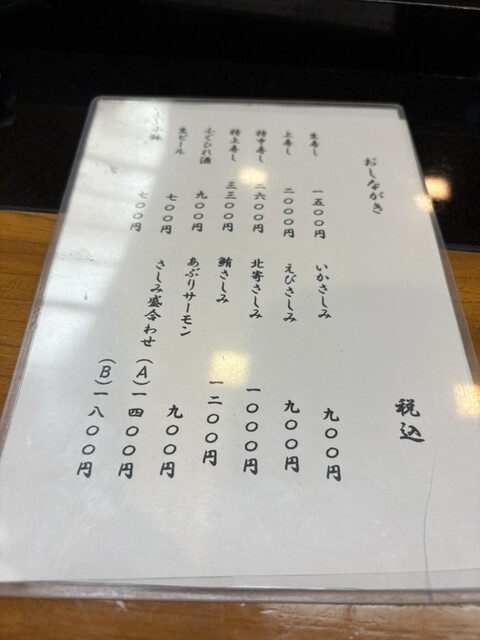 おしながき
税込
生寿し 一五〇〇円
上寿し 二〇〇〇円
特中寿し 二六〇〇円
特上寿し 三三〇〇円
ふぐひれ酒 九〇〇円
生ビール 七〇〇円
七〇〇円
いかさしみ 九〇〇円
えびさしみ 九〇〇円
北寄さしみ 一〇〇〇円
鮪さしみ 一二〇〇円
あぶりサーモン 九〇〇円
さしみ盛合わせ (A)一四〇〇円
(B)一八〇〇円